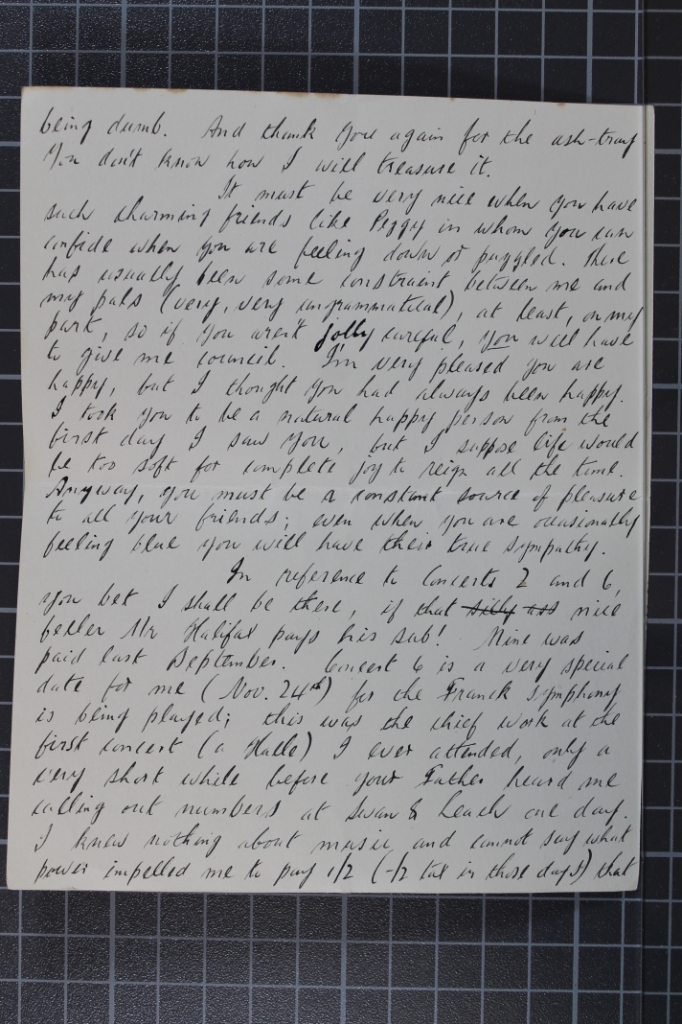 being dumb. And thank you again for the ash-tray
You don't know how I will treasure it.
It must be very nice when you have
such charming friends like Peggy in whom you can
confide when you are feeling down or puzzled. There
has usually been some constraint between me and
my pals (very, very ungrammatical), at least, on my
part, so if you aren't jolly careful, you will have
to give me council. I'm very pleased you are
happy, but I thought you had always been happy.
I took you to be a natural happy person from the
first day I saw you, but I suppose life would
be too soft for complete joy to reign all the time.
Anyway, you must be a constant source of pleasure
to all your friends; even when you are occasionally
feeling blue you will have their true sympathy.
In reference to Concerts 2 and 6,
you bet I shall be there, if that silly ass nice
feller Mr Halifax pays his sub! Mine was
paid last September. Concert 6 is a very special
date for me (Nov. 24th) for the Franck Symphony
is being played; this was the chief work at the
first concert (a Halle) I ever attended, only a
very short while before your Father heard me
calling out numbers at Swan & Leach one day.
I knew nothing about music and cannot say what
power impelled me to pay 1/2 (-/2 tax in those days) that